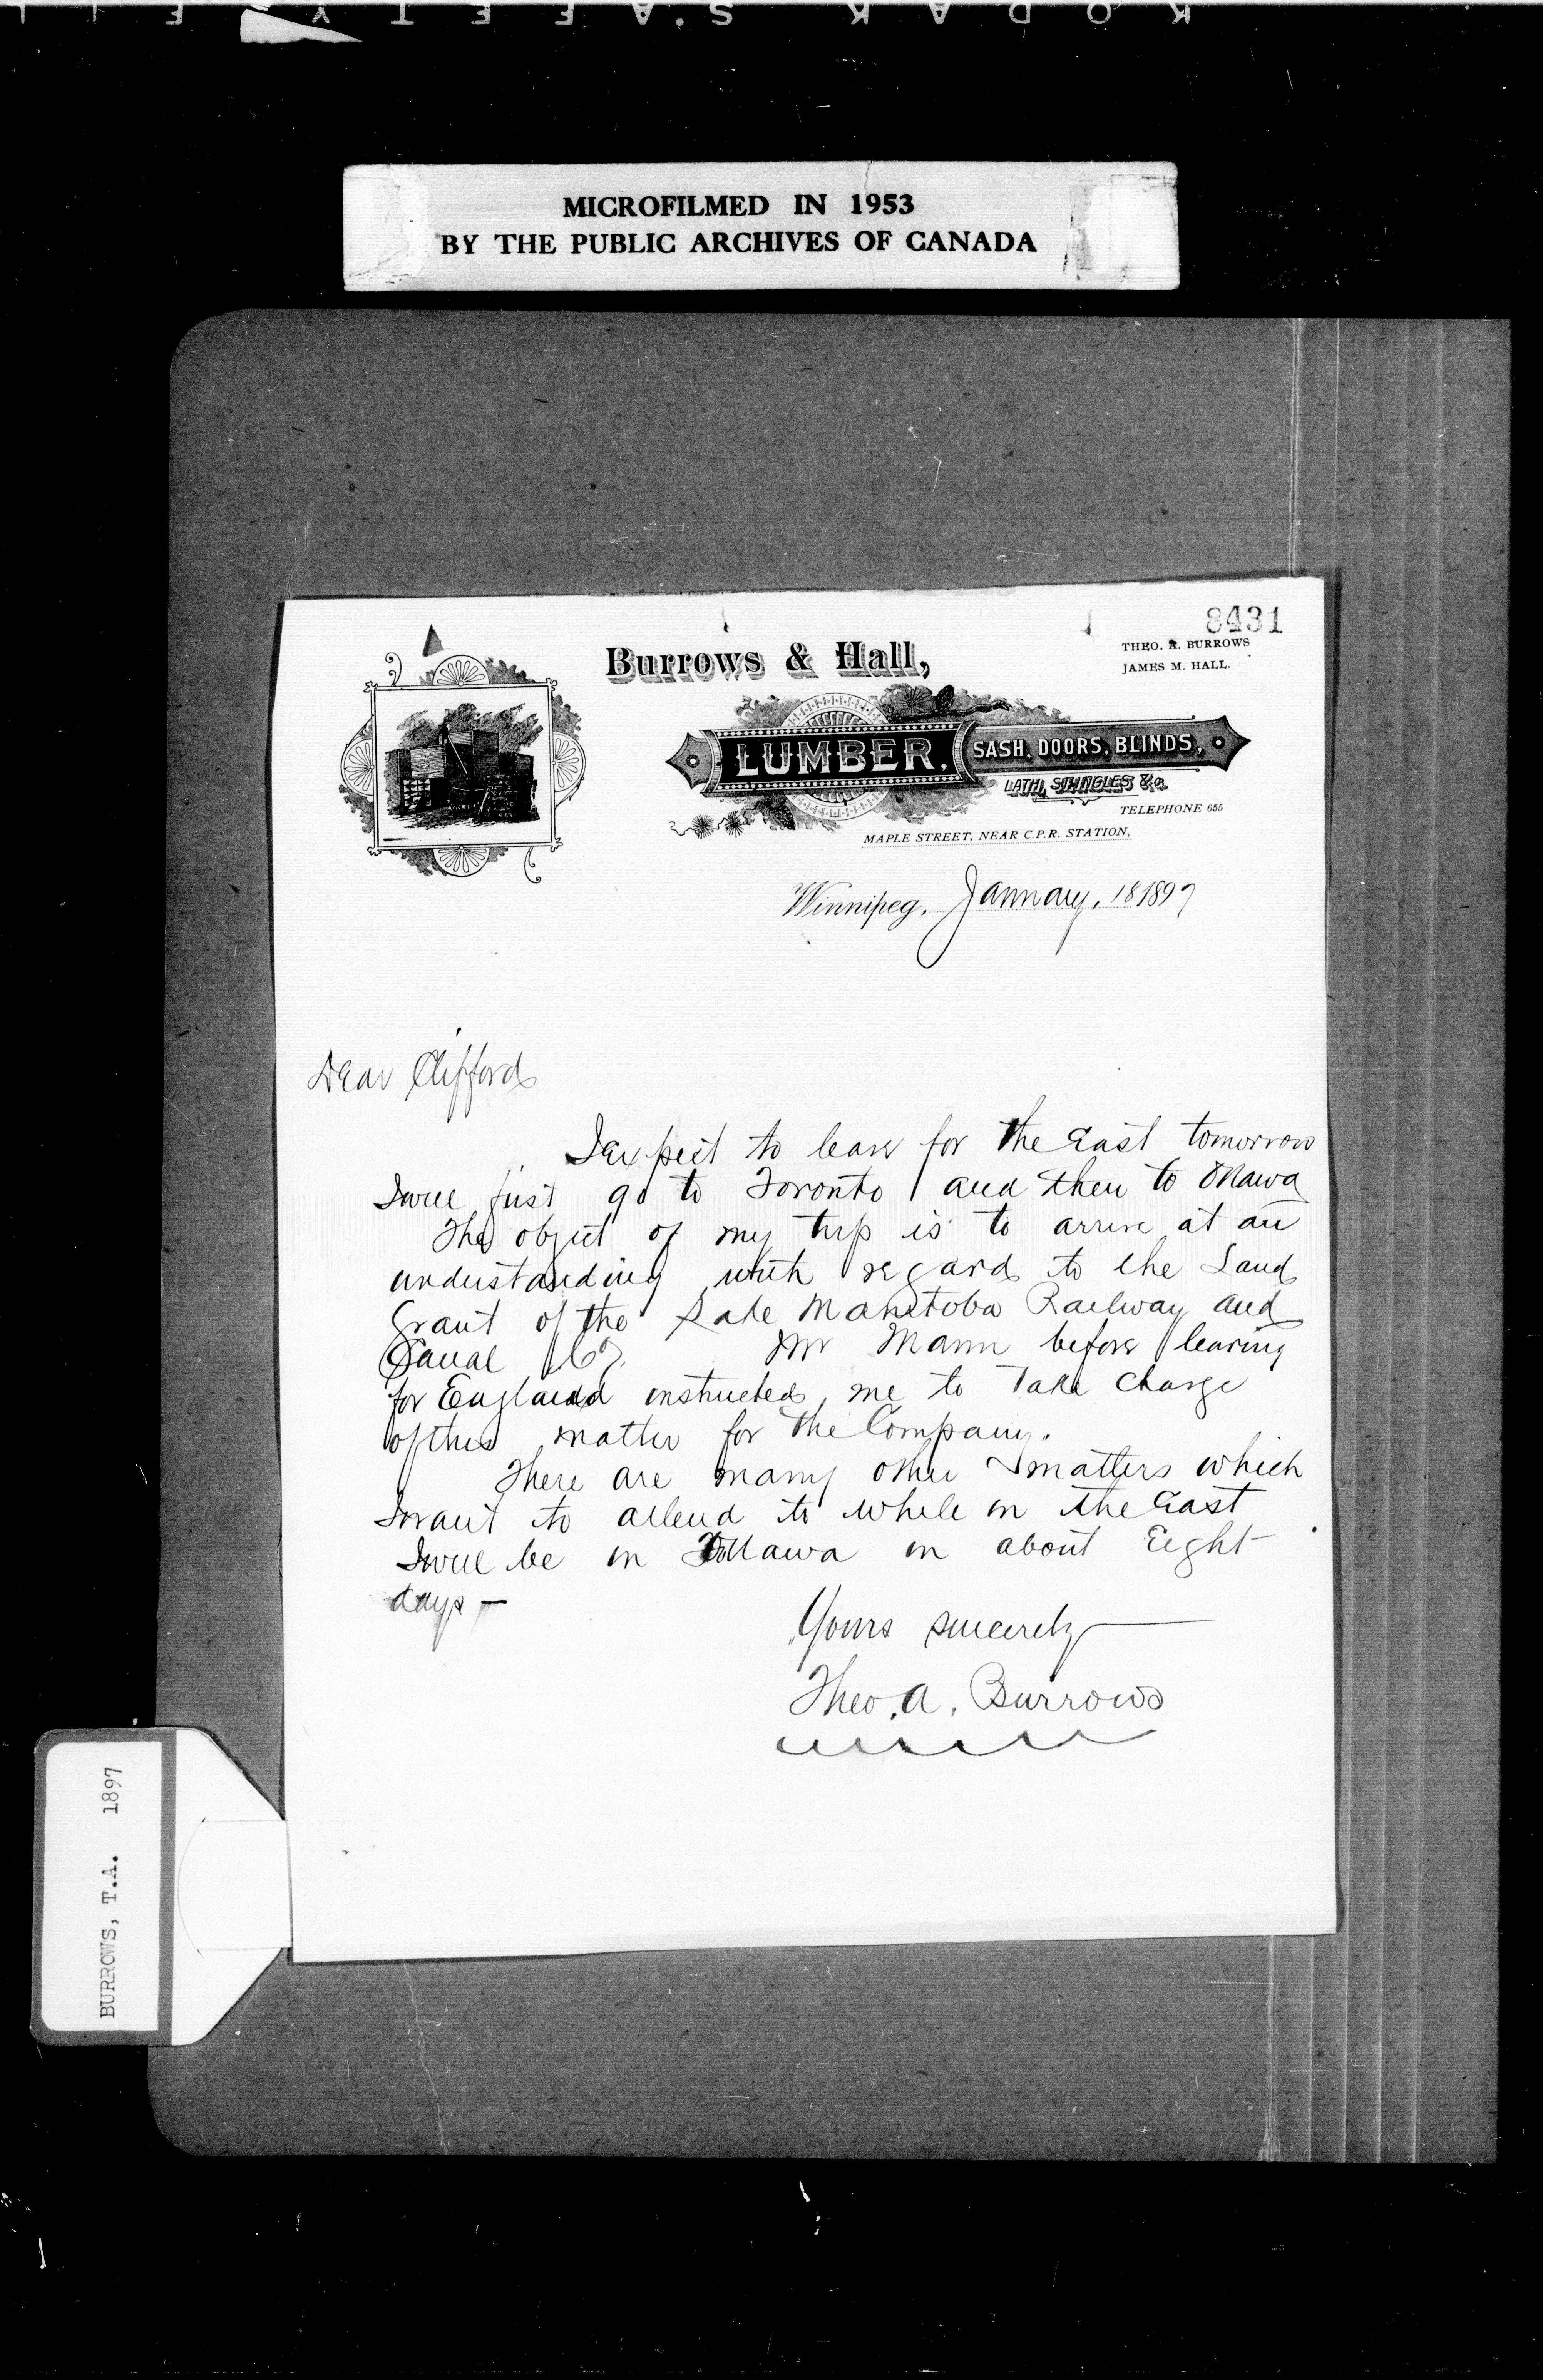 KODAK S.A.F.E.T.Y. F I L
MICROFILMED IN 1953
BY THE PUBLIC ARCHIVES OF CANADA
8431
THEO. A. BURROWS
JAMES M. HALL.
Burrows & Hall,
LUMBER, SASH, DOORS, BLINDS,
LATH, SHINGLES &c.
TELEPHONE 655
MAPLE STREET, NEAR C.P.R. STATION,
Winnipeg, January, 18 1897
Dear Clifford
I expect to leave for the East tomorrow
I will first go to Toronto and then to Ottawa
The object of my trip is to arrive at an
understanding with regard to the Land
Grant of the Lake Manitoba Railway and
Canal Co'y. Mr Mann before leaving
for England instructed me to take charge
of this matter for the Company.
There are many other matters which
I want to attend to while in the East
I will be in Ottawa in about Eight
days —
Yours sincerely
Theo. A. Burrows
BURROWS, T.A. 1897